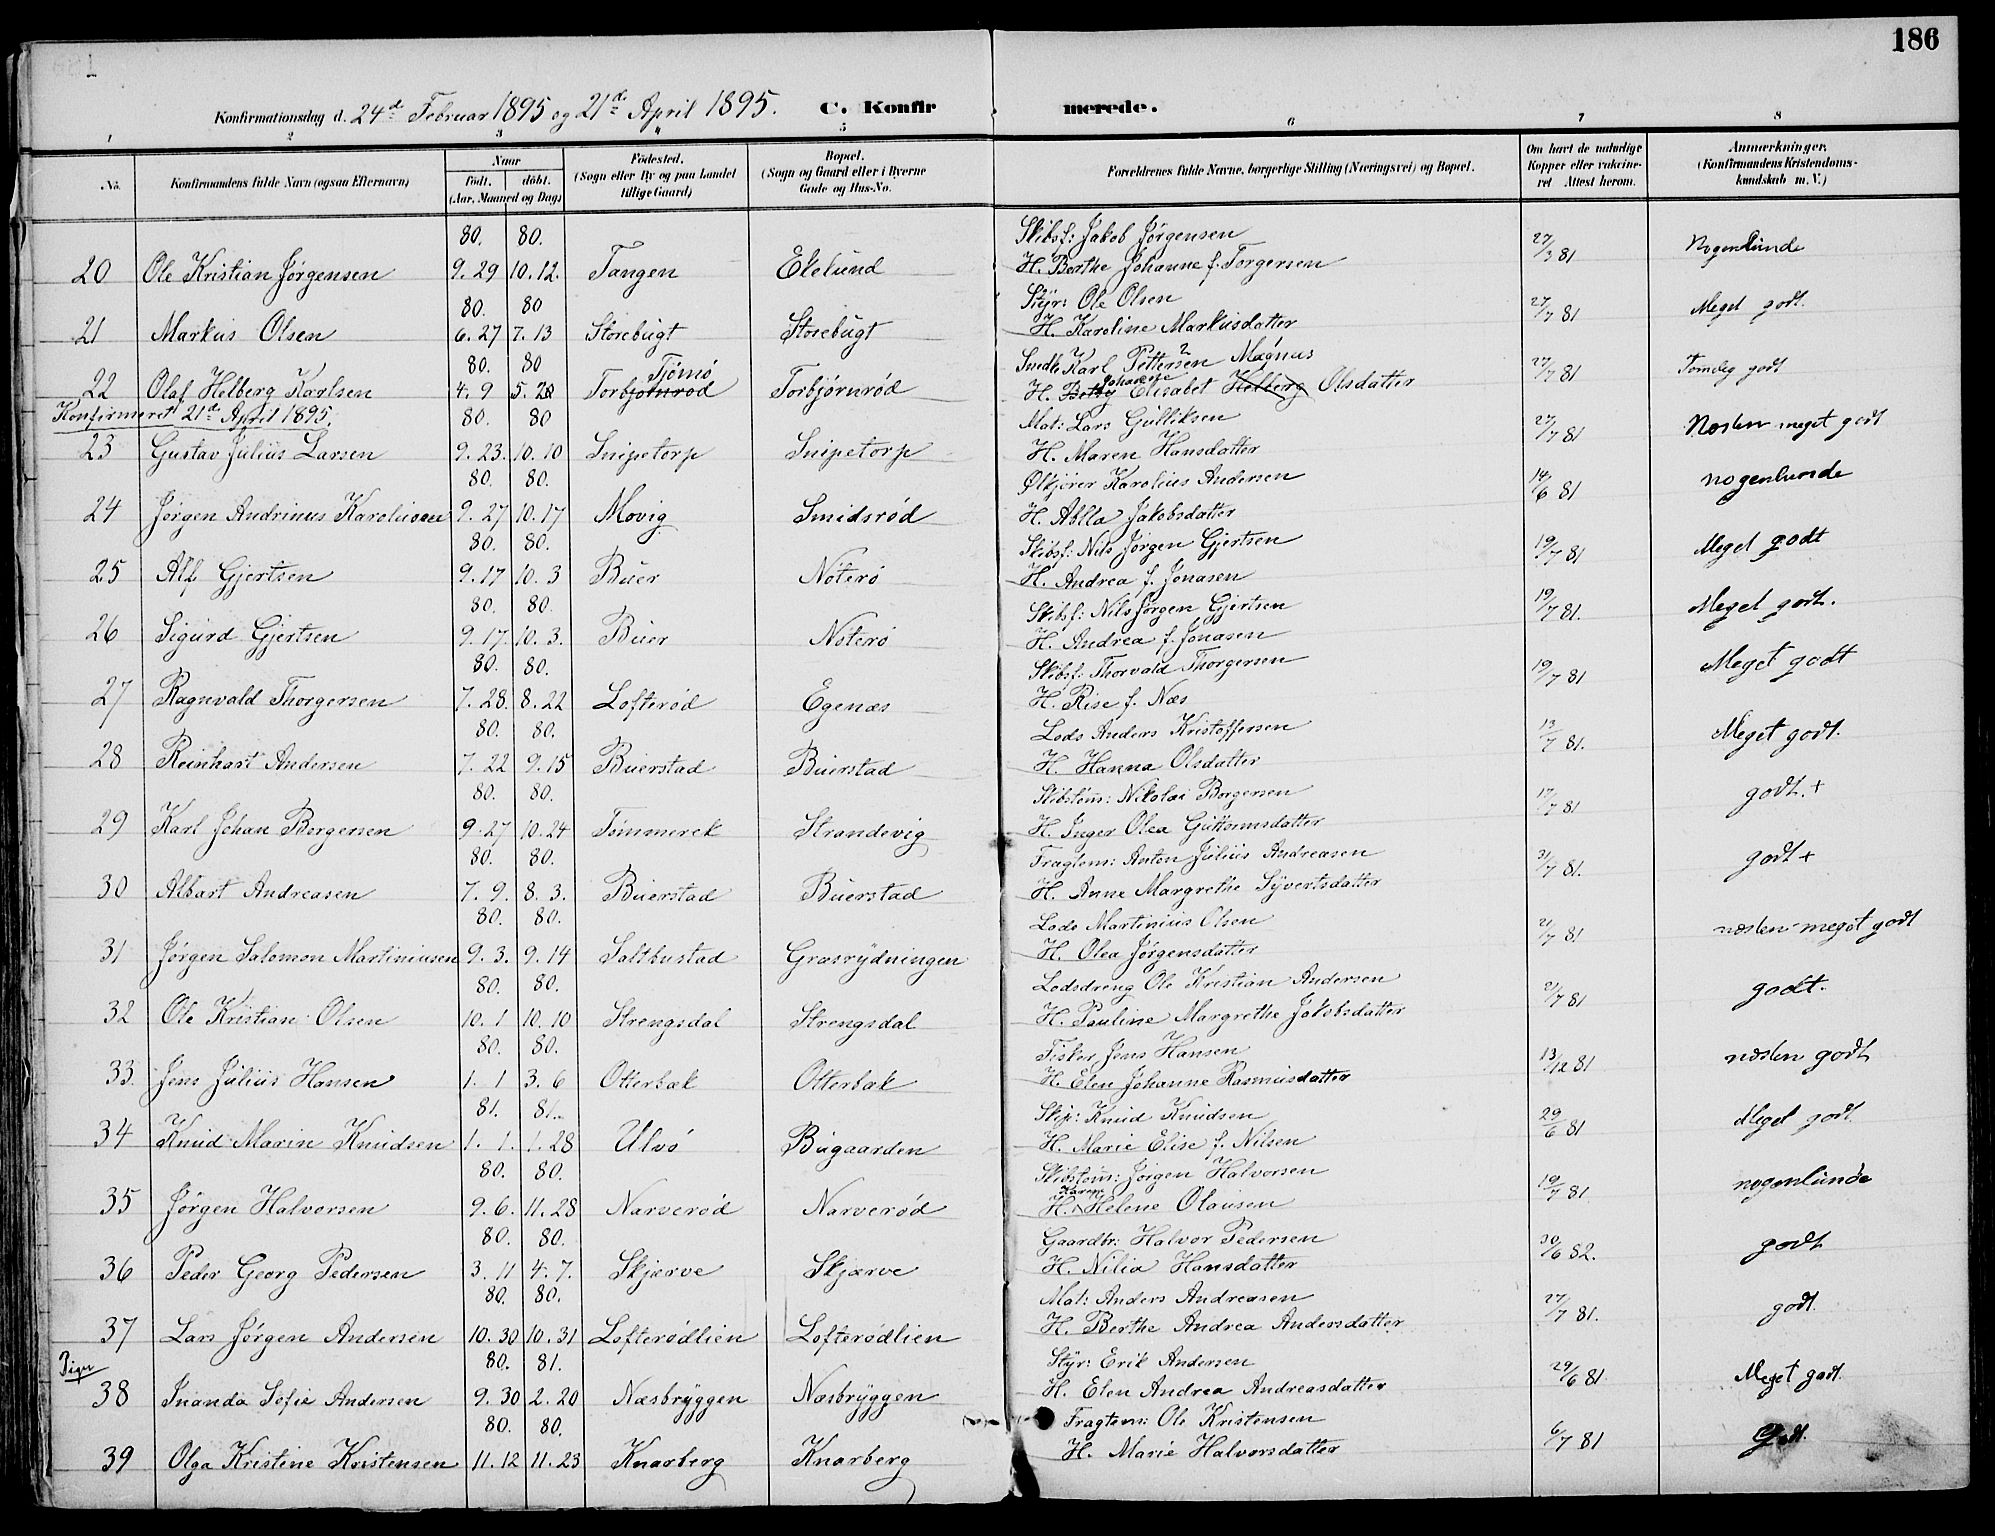 186
Konfirmationsdag d. 24de Februar 1895 og 21de April 1895. C. Konfirmerede.
1 2 3 4 5 6 7 8
No. Konfirmandens fulde Navn (ogsaa Efternavn) Naar født. døbt. (Aar, Maaned og Dag) Fødested. (Sogn eller By og paa Landet tillige Gaard) Bopæl. (Sogn og Gaard eller i Byerne Gade og Hus-No. Forældrenes fulde Navne, borgerlige Stilling (Næringsvei) og Bopæl. Om havt de naturlige Kopper eller vakcineret Attest herom. Anmærkninger. (Konfirmandens Kristendomskundskab m. V.)
80. 80. Skibsf: Jakob Jørgensen
20 Ole Kristian Jørgensen 9. 29 10. 12. Tangen Ekelund H. Berthe Johanne f. Torgersen 27/3 81 Nogenlunde
80. 80 Styr: Ole Olsen
21 Markus Olsen 6. 27 7. 13 Storebugt Storebugt H. Karoline Markusdatter 27/7 81 Meget godt.
80. 80 Tjömö Snedk Karl Pettersen Magnus
22 Olaf Helberg Karlsen 4. 9 5. 28 Torbjørnrød Torbjörnröd H. Betsy Johanne Elisabet Helberg Olsdatter 27/7 81 Temelig godt
Konfirmeret 21de April 1895.
80. 80 Mat: Lars Gulliksen
23 Gustav Julius Larsen 9. 23. 10. 10 Snipetorp Snipetorp H. Maren Hansdatter 27/7 81 Næsten meget godt
80. 80. Ølkjörer Karolius Andersen
24 Jørgen Andrinus Karoliusen 9. 27 10. 17 Movig Smidsrød H. Ablla Jakobsdatter 14/6 81 nogenlunde
80. 80. Skibsf: Nils Jørgen Gjertsen
25 Alf Gjertsen 9. 17 10. 3 Buer Nøterø H. Andrea f. Jonasen 19/7 81 Meget godt
80. 80. Skibsf: Nils Jørgen Gjertsen
26 Sigurd Gjertsen 9. 17. 10. 3. Buer Nøterø H. Andrea f. Jonasen 19/7 81. Meget godt.
80. 80. Skibsf: Thorvald Thorgersen
27 Ragnvald Thorgersen 7. 28. 8. 22 Lofterød Egenæs H. Rise f. Næs 19/7 81 Meget godt
80. 80. Lods Anders Kristoffersen
28 Reinhart Andersen 7. 22 9. 15 Buerstad Buerstad H. Hanna Olsdatter 13/7 81. Meget godt.
80. 80. Skibstøm: Nikolai Borgersen
29 Karl Johan Borgersen 9. 27 10. 24 Tømmerek Strandevig H. Inger Olea Guttormsdatter 17/7 81 godt. +
80. 80. Fragtem: Anton Julius Andreasen
30 Albart Andreasen 7. 9. 8. 3. Buerstad Buerstad H. Anne Margrethe Syvertsdatter 31/7 81. godt +
80. 80. Lods Martinius Olsen
31 Jørgen Salomon Martiniusen 9. 3. 9. 14 Saltbustad Græsrydningen H. Olea Jørgensdatter 21/7 81 næsten meget godt
80. 80. Lodsdreng Ole Kristian Andersen
32 Ole Kristian Olsen 10. 1 10. 10 Strengsdal Strengsdal H. Pauline Margrethe Jakobsdatter 21/7 81 godt.
80. 80. Fisker Jens Hansen
33. Jens Julius Hansen 1. 1 3. 6 Otterbæk Otterbæk H. Elen Johanne Rasmusdatter 13/12 81 næsten godt
81. 81. Skip: Knud Knudsen
34 Knud Marin Knudsen 1. 1. 1. 28 Ulvö Bugaarden H. Marie Elise f. Nilsen 29/6 81 Meget godt.
80. 80. Skibstøm: Jørgen Halvorsen
35 Jørgen Halvorsen 9. 6. 11. 28 Narverød Narverød H. Karen Helene Olausen 19/7 81. nogenlunde
80. 80. Gaardbr: Halvor Pedersen
36 Peder Georg Pedersen 3. 11 4. 7. Skjærve Skjærve H. Nilia Hansdatter 30/6 82. godt
80. 80. Mat: Anders Andreasen
37 Lars Jørgen Andersen 10. 30 10. 31 Lofterødlien Lofterødlien H. Berthe Andrea Andersdatter 27/7 81. godt.
Piger 80. 81. Styr: Erik Andersen
38 Inanda Sofie Andersen 9. 30 2. 20 Næsbryggen Næsbryggen H. Elen Andrea Andreasdatter 29/6 81 Meget godt.
80. 80. Fragtem: Ole Kristensen
39 Olga Kristine Kristensen 11. 12 11. 23 Knarberg Knarberg H. Marie Halvorsdatter 6/7 81 Godt.